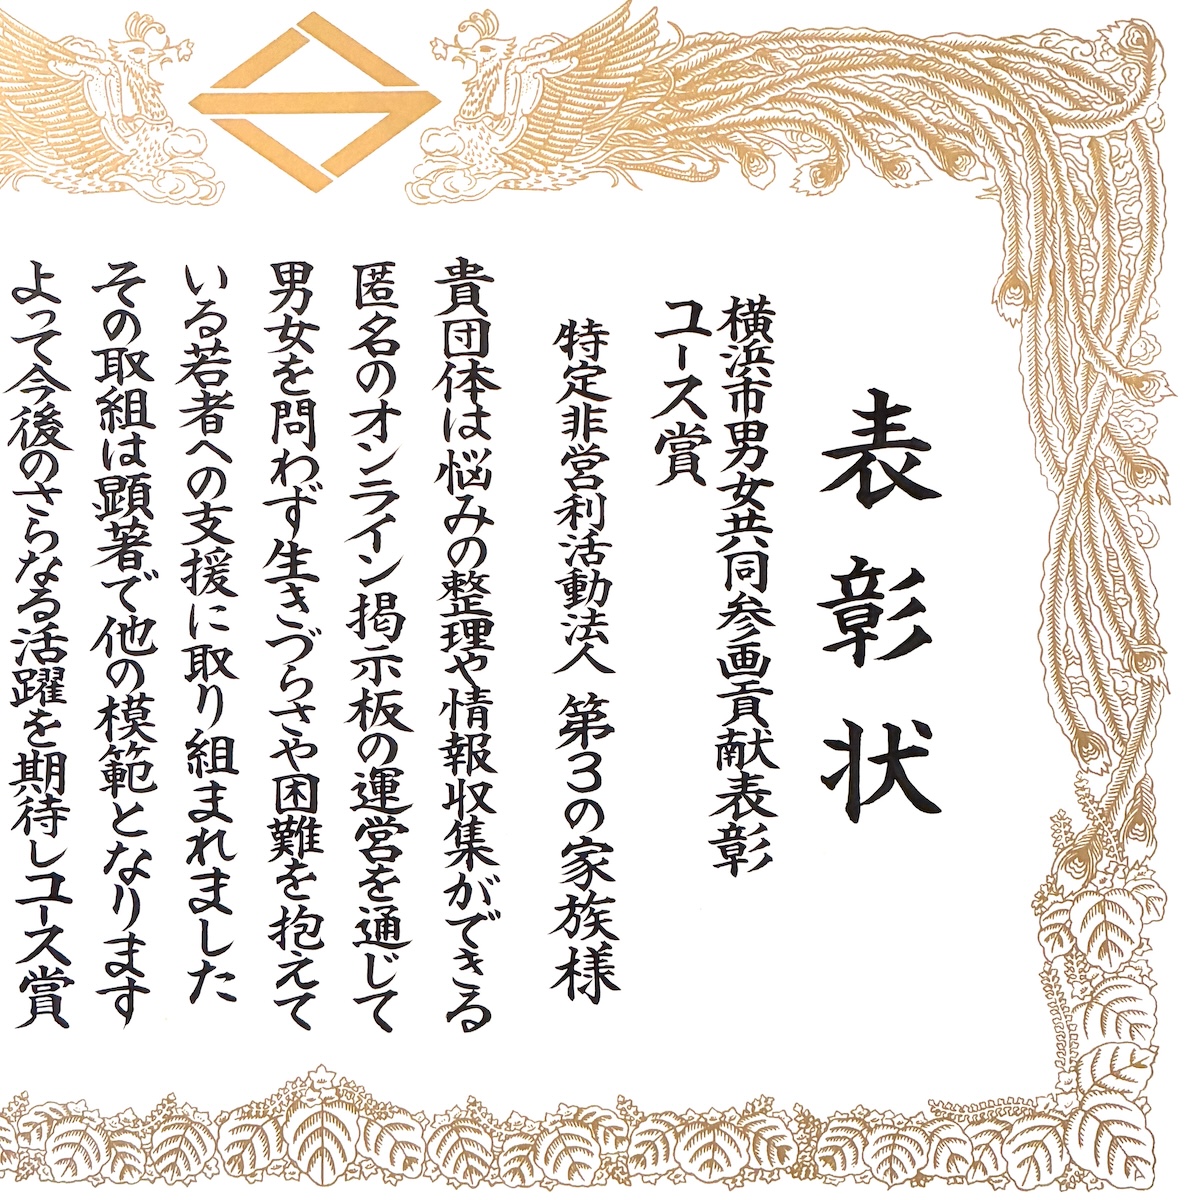 表彰状
横浜市男女共同参画貢献表彰
ユース賞
特定非営利活動法人 第3の家族様
貴団体は悩みの整理や情報収集ができる
匿名のオンライン掲示板の運営を通じて
男女を問わず生きづらさや困難を抱えて
いる若者への支援に取り組まれました
その取組は顕著で他の模範となります
よって今後のさらなる活躍を期待しユース賞